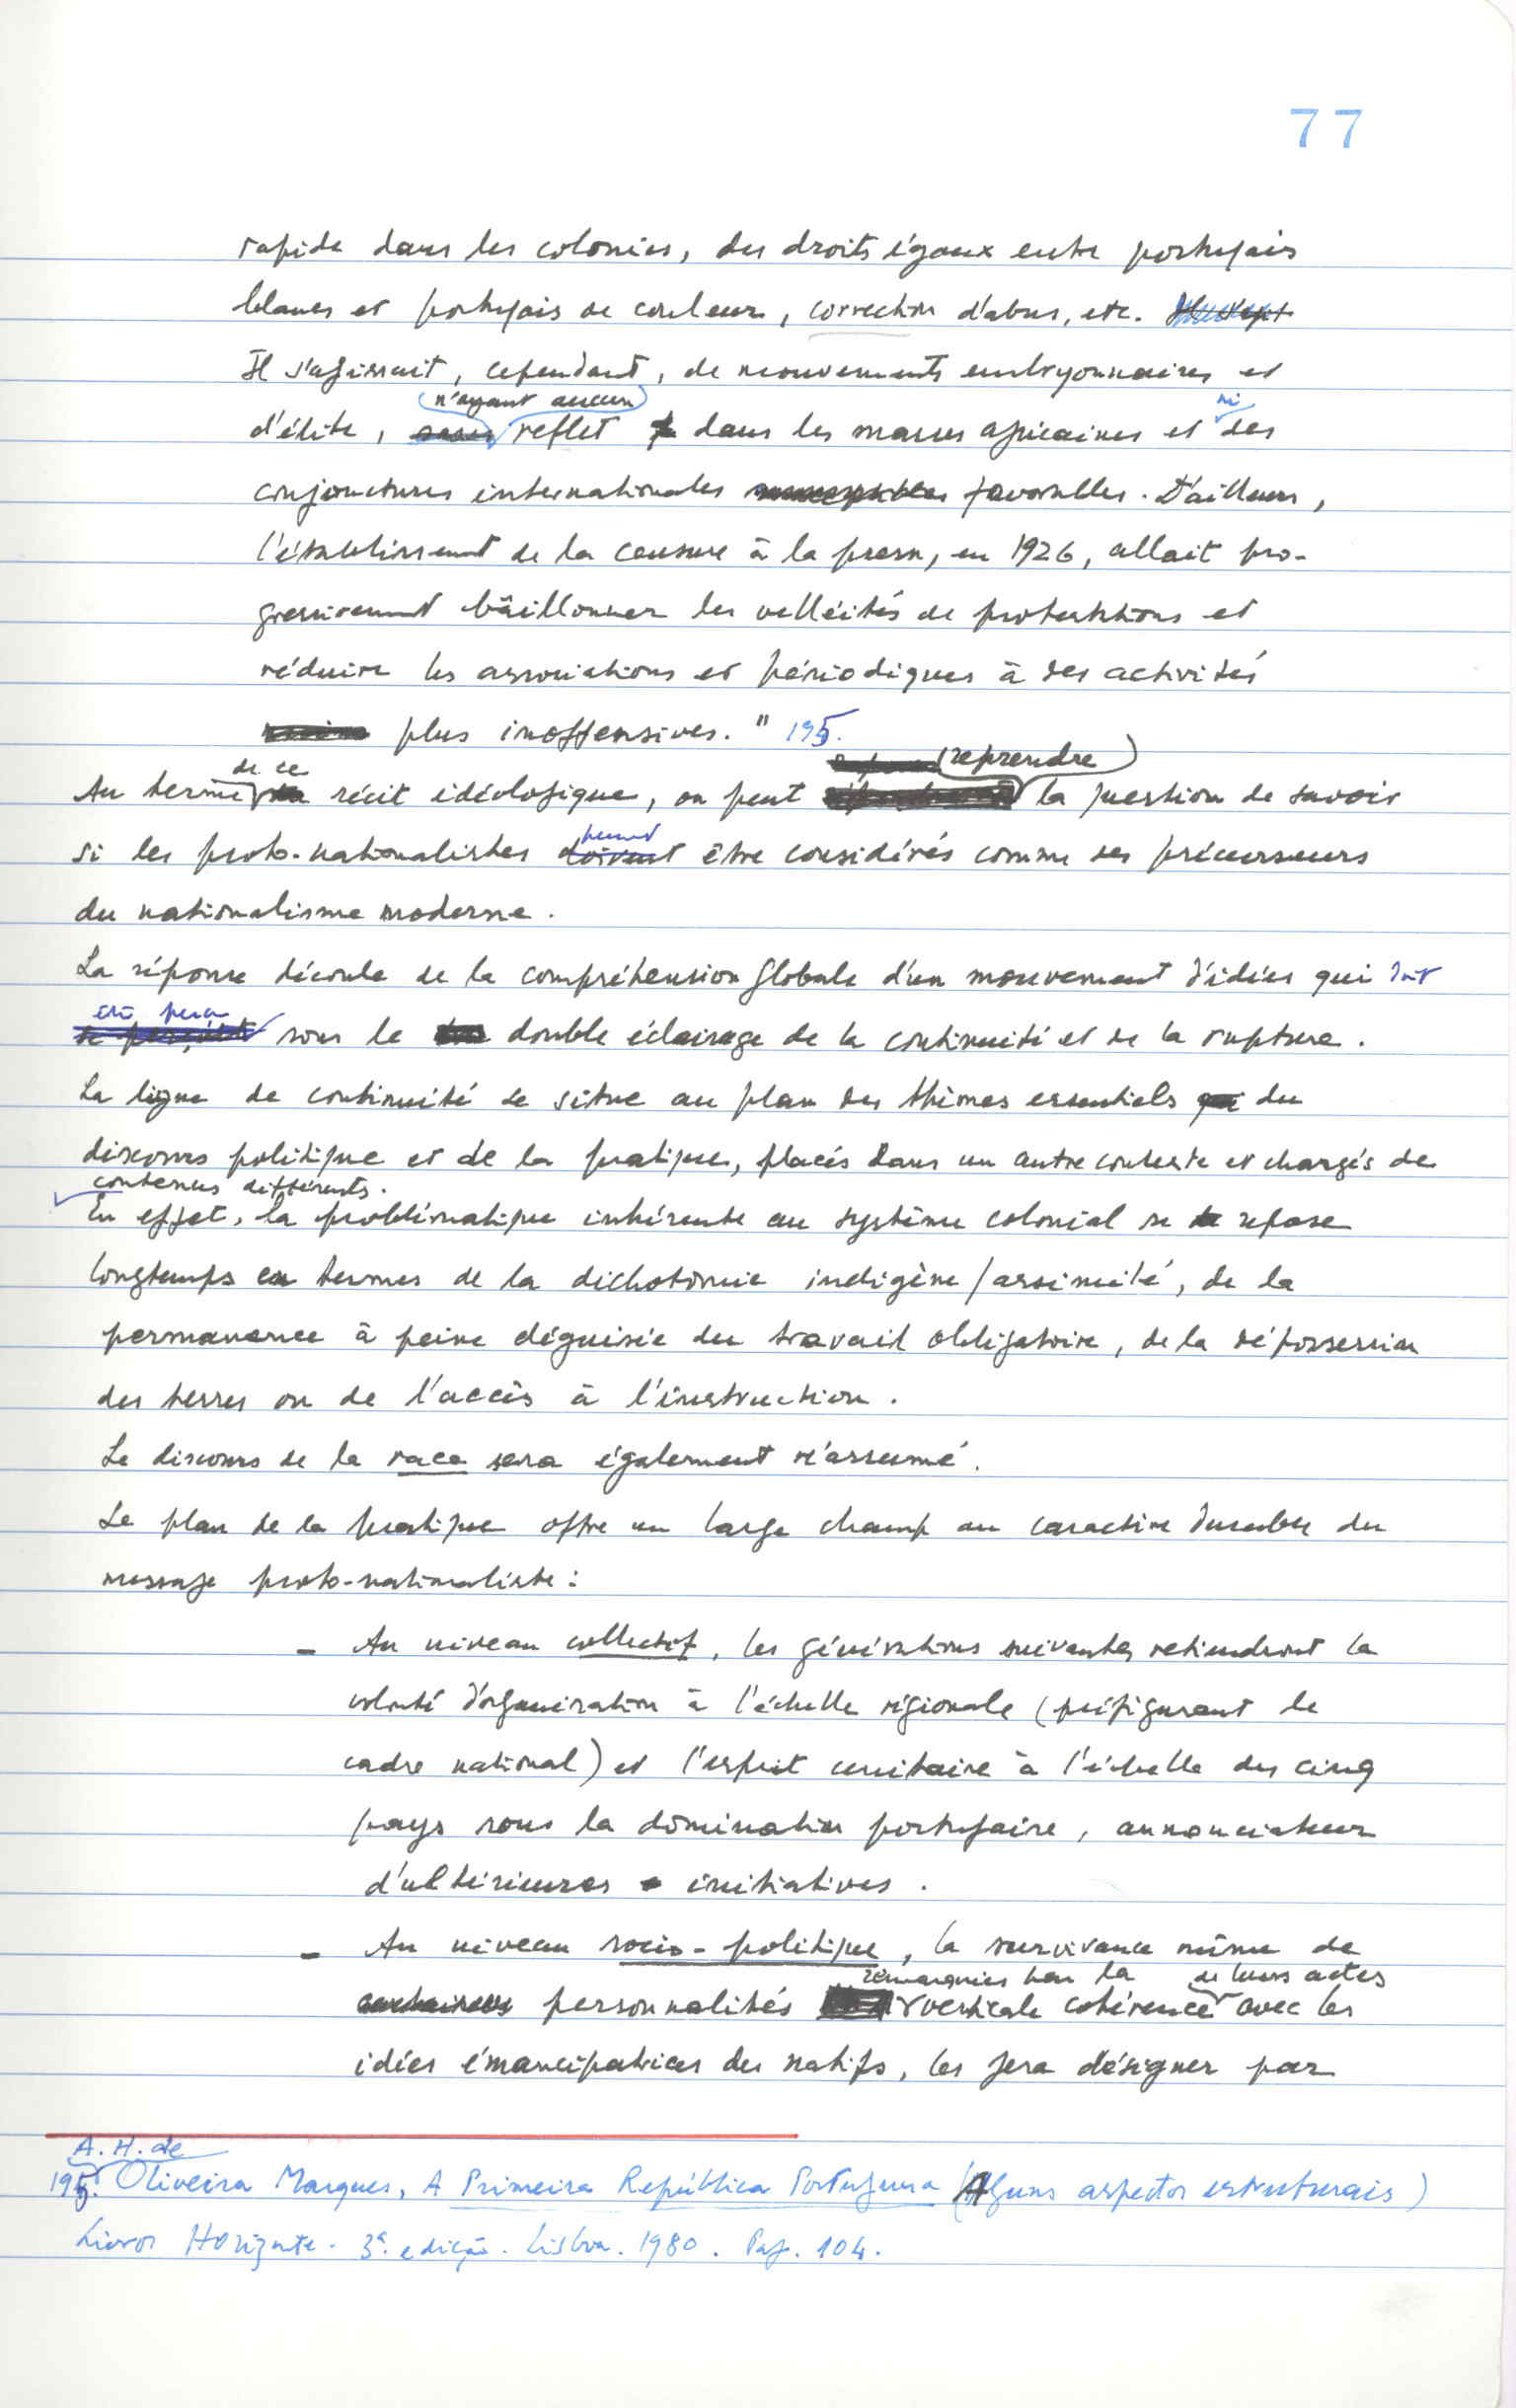 77
rapide dans les colonies, des droits égaux entre portugais
blancs et portugais de couleur, correction d'abus, etc.
Il s'agissait, cependant, de mouvements embryonnaires et
n'ayant aucun ni
d'élite, sans reflet dans les masses africaines et des
conjonctures internationales favorables. D'ailleurs,
l'établissement de la censure à la presse, en 1926, allait pro-
gressivement bâillonner les velléités de protestations et
réduire les associations et périodiques à des activités
plus inoffensives." 195.
de ce reprendre
Au terme récit idéologique, on peut la question de savoir
peuvent
si les proto-nationalistes doivent être considérés comme des précurseurs
du nationalisme moderne.
La réponse découle de la compréhension globale d'un mouvement d'idées qui doit
être perçu
sous le double éclairage de la continuité et de la rupture.
La ligne de continuité se situe au plan des thèmes essentiels qui du
discours politique et de la pratique, placés dans un autre contexte et chargés de
contenus différents.
En effet, la problématique inhérente au système colonial se repose
longtemps en termes de la dichotomie indigène/assimilé, de la
permanence à peine déguisée du travail obligatoire, de la dépossession
des terres ou de l'accès à l'instruction.
Le discours de la race sera également réassumé.
Le plan de la pratique offre un large champ au caractère durable du
message proto-nationaliste:
- Au niveau collectif, les générations suivantes retiendront la
volonté d'organisation à l'échelle régionale (préfigurant le
cadre national) et l'esprit unitaire à l'échelle des cinq
pays sous la domination portugaise, annonciateur
d'ultérieures initiatives.
- Au niveau socio-politique, la survivance même de
remarquées par la de leurs actes
personnalités verticale cohérence avec les
idées émancipatrices des natifs, les fera désigner par
A. H. de
195. Oliveira Marques, A Primeira República Portuguesa (Alguns aspectos estruturais)
Livros Horizonte. 3ª. edição. Lisboa. 1980. Pag. 104.